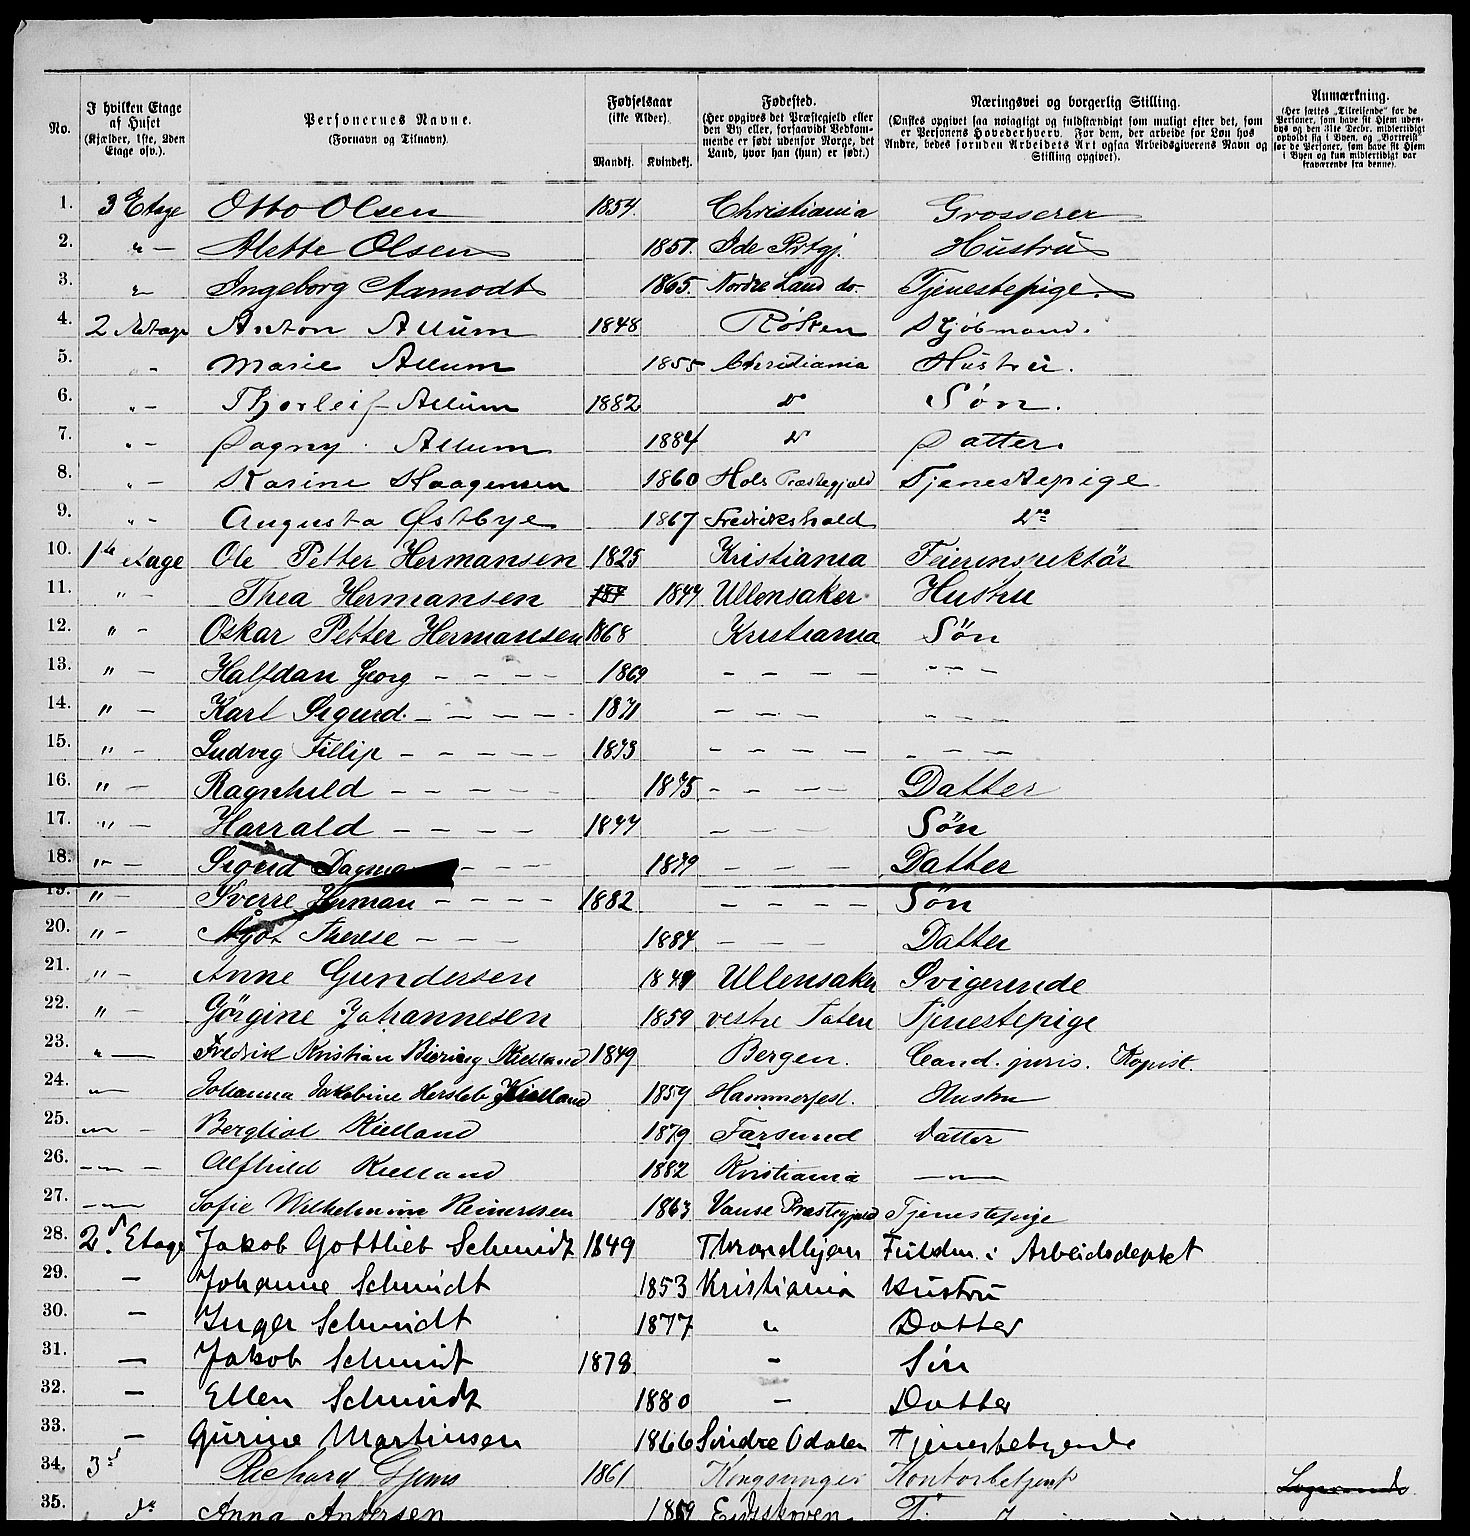 No. | I hvilken Etage af Huset (Kjælder, 1ste, 2den Etage osv.). | Personernes Navne. (Fornavn og Tilnavn). | Fødselsaar (ikke Alder). Mandkj. Kvindekj. | Fødested. (Her opgives det Præstegjeld eller den By eller, forsaavidt Vedkommende er født udenfor Norge, det Land, hvor han (hun) er født.) | Næringsvei og borgerlig Stilling. (Ønskes opgivet saa nøiagtigt og fuldstændigt som muligt efter det, som er Personens Hovederhverv. For dem, der arbeide for Løn hos Andre, bedes foruden Arbeidets Art ogsaa Arbeidsgiverens Navn og Stilling opgivet). | Anmærkning. (Her sættes „Tilreisende“ for de Personer, som have sit Hjem udenbys og den 31te Decbr. midlertidigt opholdt sig i Byen, og „Bortreist“ for de Personer, som have sit Hjem i Byen og kun midlertidigt var fraværende fra denne).
1. 3 Etage Otto Olsen 1854. Christiania Grosserer
2. „ — Alette Olsen 1857. Ide Prtgj. Hustru
3. „ Ingeborg Aamodt 1865. Nordre Land do. Tjenestepige.
4. 2 Etage Anton Allum 1848 Røken Skjøbmand.
5. „ Marie Allum 1855 Christiania Hustru.
6. „ — Thorleif Allum 1882 do Søn.
7. „ — Dagny Allum 1884 do Datter.
8. „ — Karine Haagensen 1860 Hols Præstegjeld Tjenestepige
9. „ — Augusta Østbye 1867 Fredrikshald do
10. 1ste Etage Ole Petter Hermansen 1825 Kristiania Feierinspektör
11. „ — Thea Hermansen 1847 Ullensaker Hustru
12. „ — Oskar Petter Hermansen 1868 Kristiania Sön
13. „ — Halfdan Georg — — — — 1869 — — — — — — —
14. „ — Karl Sigurd. — — — — — 1871 — — — — — — —
15. „ — Ludvig Fillip — — — — — 1873 — — — — — — —
16. „ — Ragnhild — — — — — 1875 — — — — Datter
17. „ — Harrald — — — — 1877 — — — — Sön
18. „ — Sigrid Dagmar — — 1879 — — — Datter
19. „ — Sverre Herman — — — — 1882 — — — — Sön
20. „ — Ågot Therese — — — 1884 — — — Datter
21. „ — Anne Gundersen Ullensaker
22. „ — Görgine Johannesen 1859 vestre Toten Tjenestepige
23. „ — Fredrik Kristian Biering Kielland 1849 Bergen. Cand. juris. Kopist.
24. „ — Johanna Jakobine Hersleb Kielland 1859 Hammerfest. Hustru
25. „ — Bergliot Kielland 1879 Farsund Datter
26. „ — Alfhild Kielland 1882 Kristiania — „ —
27. — „ — Sofie Wilhelmine Reinertsen 1863 Vanse Præstegjeld Tjenestepige
28. 2d. Etage Jakob Gottlieb Schmidt 1849 Throndhjem Fuldm. i Arbeidsdeptet
29. — Johanne Schmidt 1853 Kristiania Hustru
30. — Inger Schmidt 1877 „ Datter
31. — Jakob Schmidt 1878 — Sön
32. — Ellen Schmidt 1880 — Datter
33. — Gurine Martinsen 1866 Söndre Odalen Tjenestetyende
34. 3d Richard Gjems 1861 Kongsvinger Kontorbetjent Logerende
35. do Anna Andersen